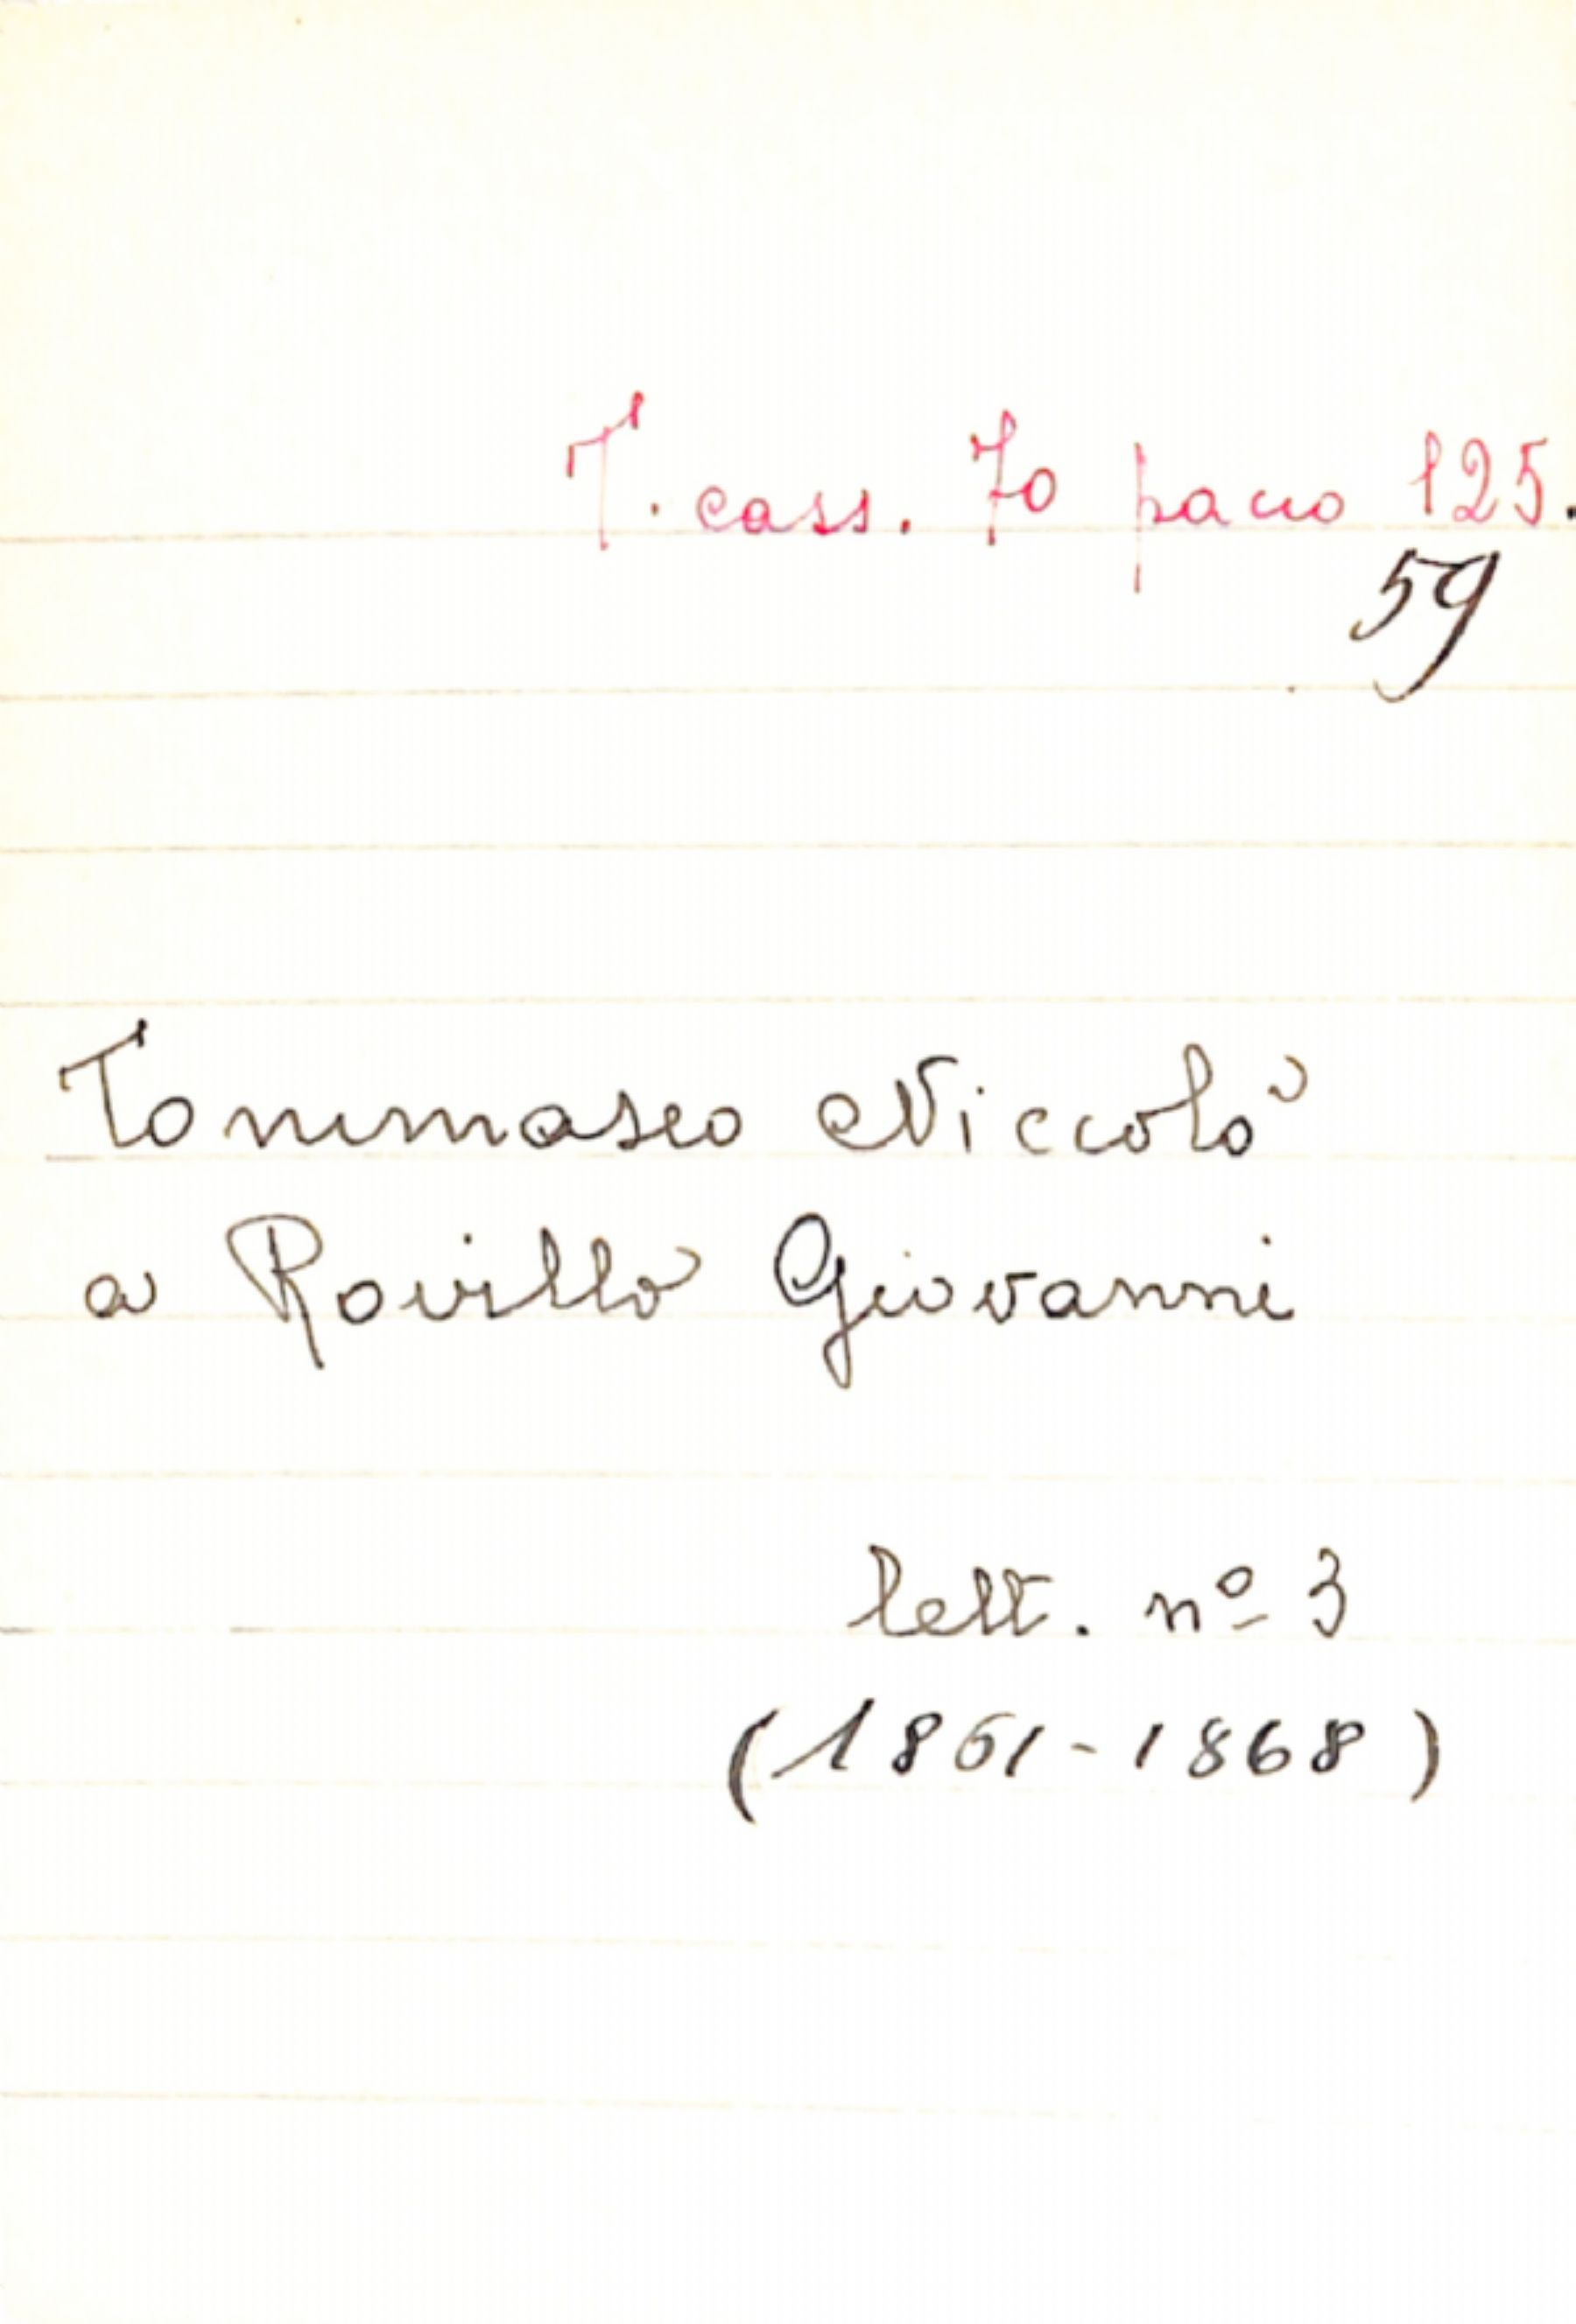 T. cass. 70 pacco 125.
59
Tommaseo Niccolò
a Rovillo Giovanni
lett. nº 3
(1861-1868)